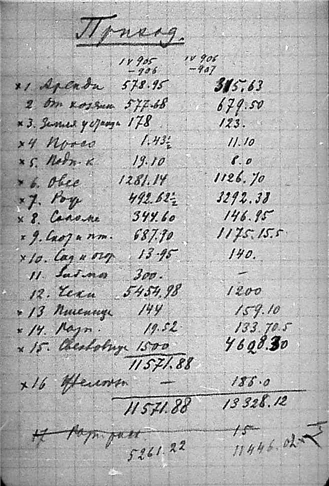 Приход.
IV 905 -906 IV 906 -907
×1. Аренды 578.95 315,63
2 От хозяин 577.68 679.50
×3. Земля у 178 123.
×4 Просо 1.43½ 11.10
×5. Подп. к 19.10 8.0
×6. Овес 1281.14 1126.70
×7. Рож 492.62½ 3292.38
×8. Солома 344.60 146.95
×9. Скот и пт. 687.90 1175.15.5
×10. Сад и огор 13.95 140.
11. Займы 300. —
12. Чеки 5454.98 1200
×13 Пшеница 144 159.10
×14. Карт. 19.52 133.70.5
×15. 1500 4608.30
11571.88
×16 — 186.0
11571.88 13328.12
17 15
5261.22 11446.02